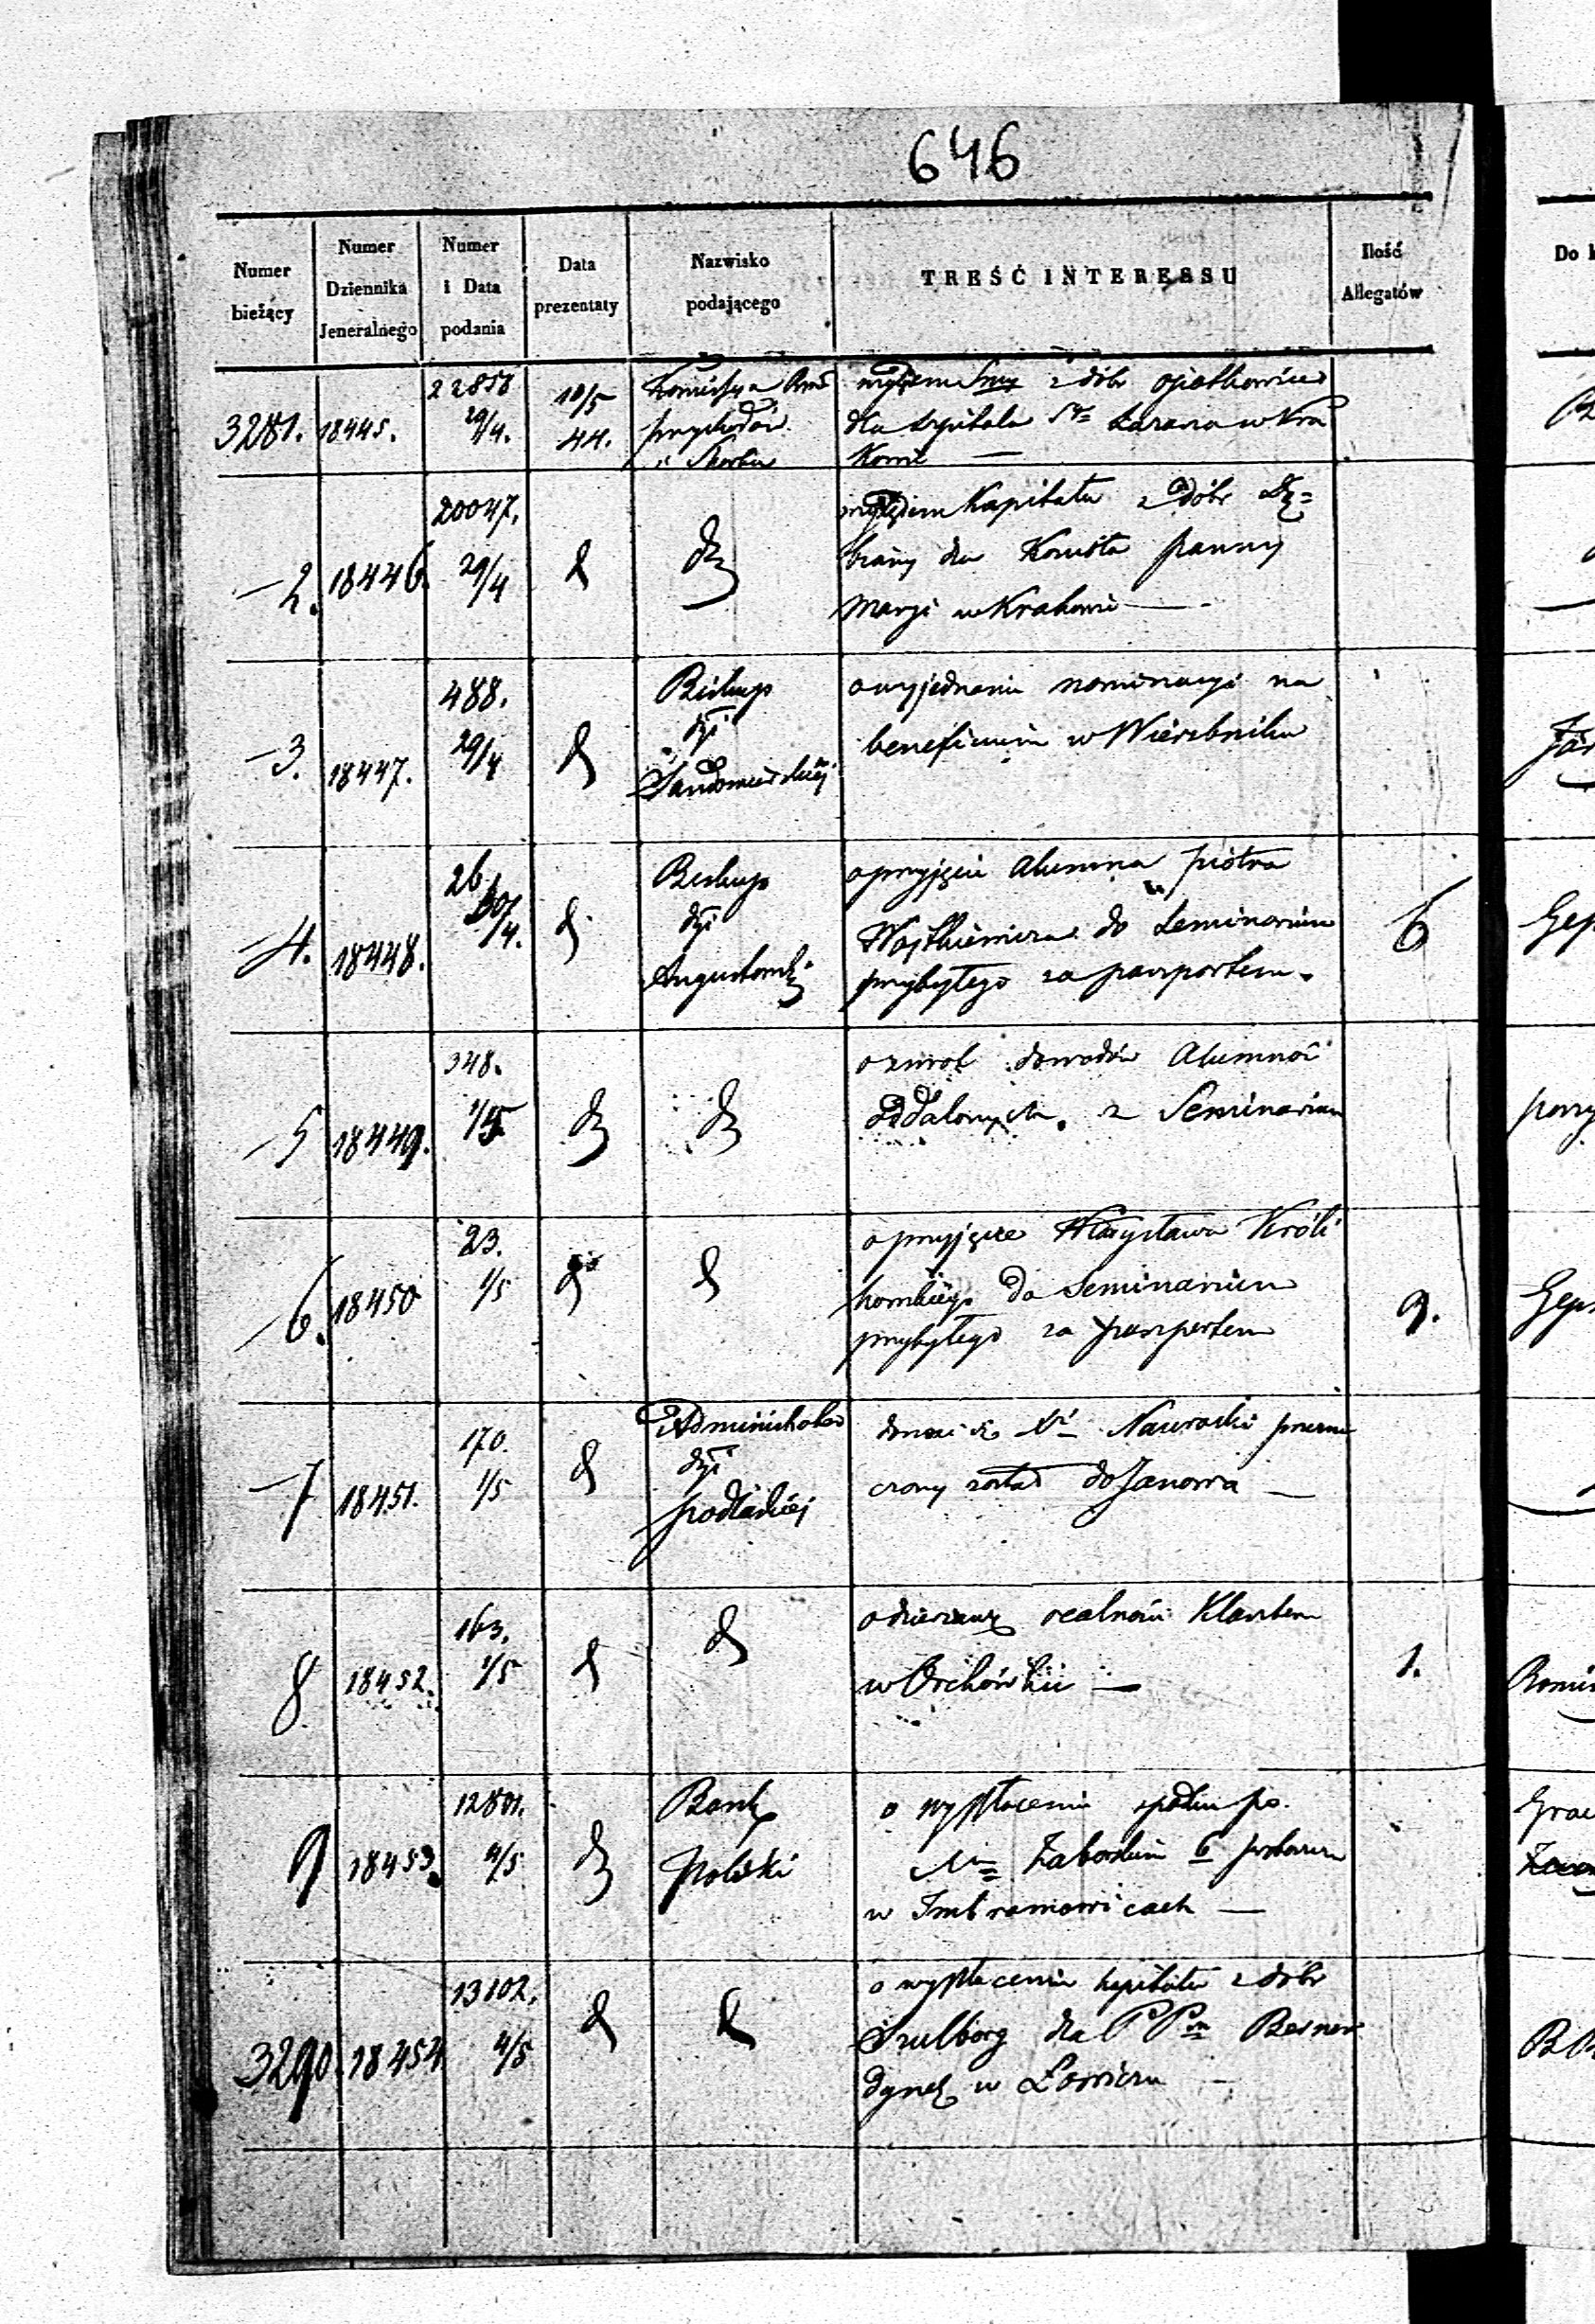 646
Numer bieżący
Numer Dziennika Jeneralnego
Numer i Data podania
Data prezentaty
Nazwisko podającego
TREŚĆ INTERESSU
Ilość Allegatów
Do
3281. 18445. 22858 29/4. 10/5 44. Komissya Rząd przychodów i Skarbu
względem Sumy z dóbr
dla szpitala Sgo Łazarza w Kra
kowie —
—2. 18446. 20047. 29/4
względem Kapitału z dóbr Dę=
biany dla Kościoła Panny
Maryi w Krakowie —
—3. 18447. 488. 29/4 Biskup dyi Sandomierskiéj
o wyjednanie nominacyi na
beneficium w Wierzbniku
—4. 18448. 26. 30/4. Biskup dyi Augustowski
o przyjęcie Alumna Piotra
Wojtkiewicza do Seminarium
przybyłego za paszportem. 6
—5 18449. 348. 1/5
o zwrot dowodów Alumnów
oddalonych z Seminarium
—6. 18450 23. 1/5
o przyjęcie Władysława Króli
kowskiego do Seminarium
przybyłego za paszportem 9.
—7 18451. 170. 1/5 Administrator dyi podlaskiéj
donosi iż Xs Nawrocki przezna
czony został do Janowa —
8. 18452. 163. 1/5
o dzierżawę realności Klasztoru
w Orchówku — 1.
9 18453. 12801. 4/5 Bank Polski
o wypłacenie spadku po
w Imbramowicach —
3290. 18454 13102. 4/5
o wypłacenie kapitału z dóbr
Szulborg dla PPn Bernar
dynek w Łowiczu —